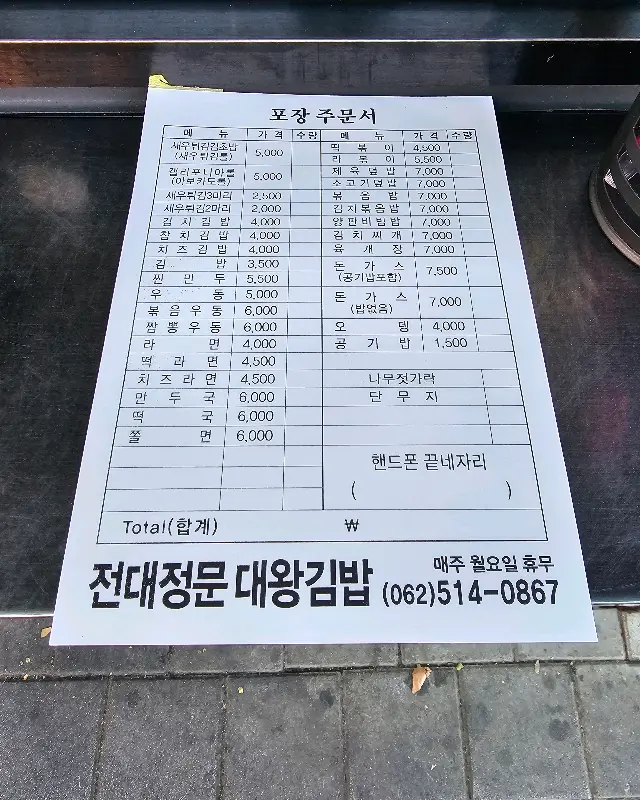 포장 주문서
메 뉴 가 격 수량
새우튀김김초밥 5,000
(새우튀김롤)
캘리포니아롤 5,000
(아보카도롤)
새우튀김3마리 2,500
새우튀김2마리 2,000
김 치 김 밥 4,000
참 치 김 밥 4,000
치 즈 김 밥 4,000
김 밥 3,500
찐 만 두 5,500
우 동 5,000
볶 음 우 동 6,000
짬 뽕 우 동 6,000
라 면 4,000
떡 라 면 4,500
치 즈 라 면 4,500
만 두 국 6,000
떡 국 6,000
쫄 면 6,000
메 뉴 가 격 수량
떡 볶 이 4,500
라 볶 이 5,500
제 육 덮 밥 7,000
소 고 기 덮 밥 7,000
볶 음 밥 7,000
김 치 볶 음 밥 7,000
양 판 비 빔 밥 7,000
김 치 찌 개 7,000
육 개 장 7,000
돈 가 스 7,500
(공기밥포함)
돈 가 스 7,000
(밥없음)
오 뎅 4,000
공 기 밥 1,500
나무젓가락
단 무 지
핸드폰 끝네자리
( )
Total(합계) ₩
매주 월요일 휴무
전대정문 대왕김밥 (062)514-0867